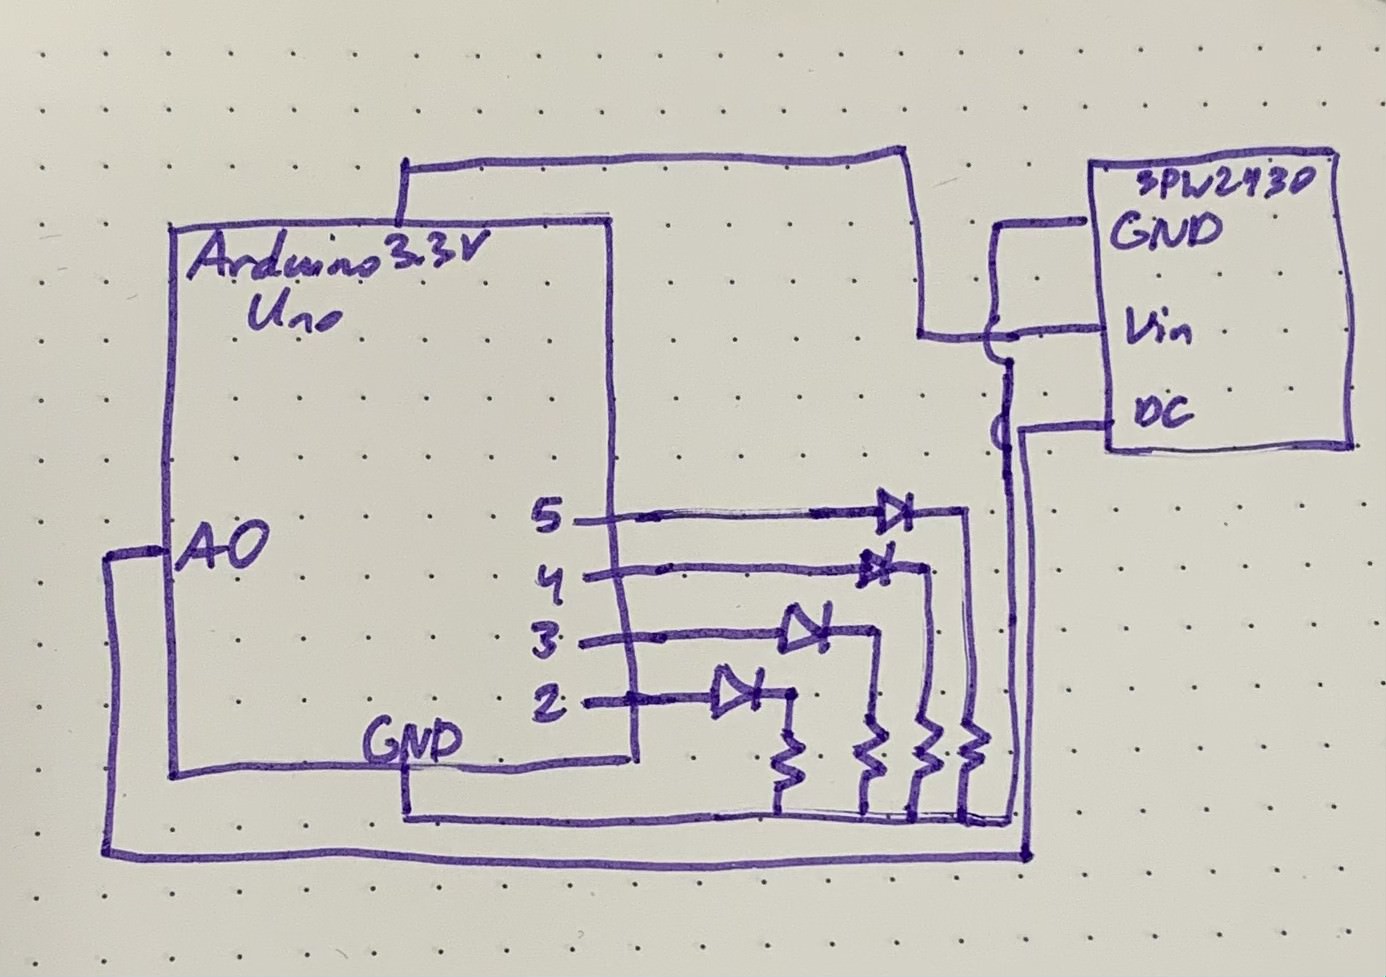 Arduino
Uno
3.3V
A0
5
4
3
2
GND
SPW2430
GND
Vin
DC